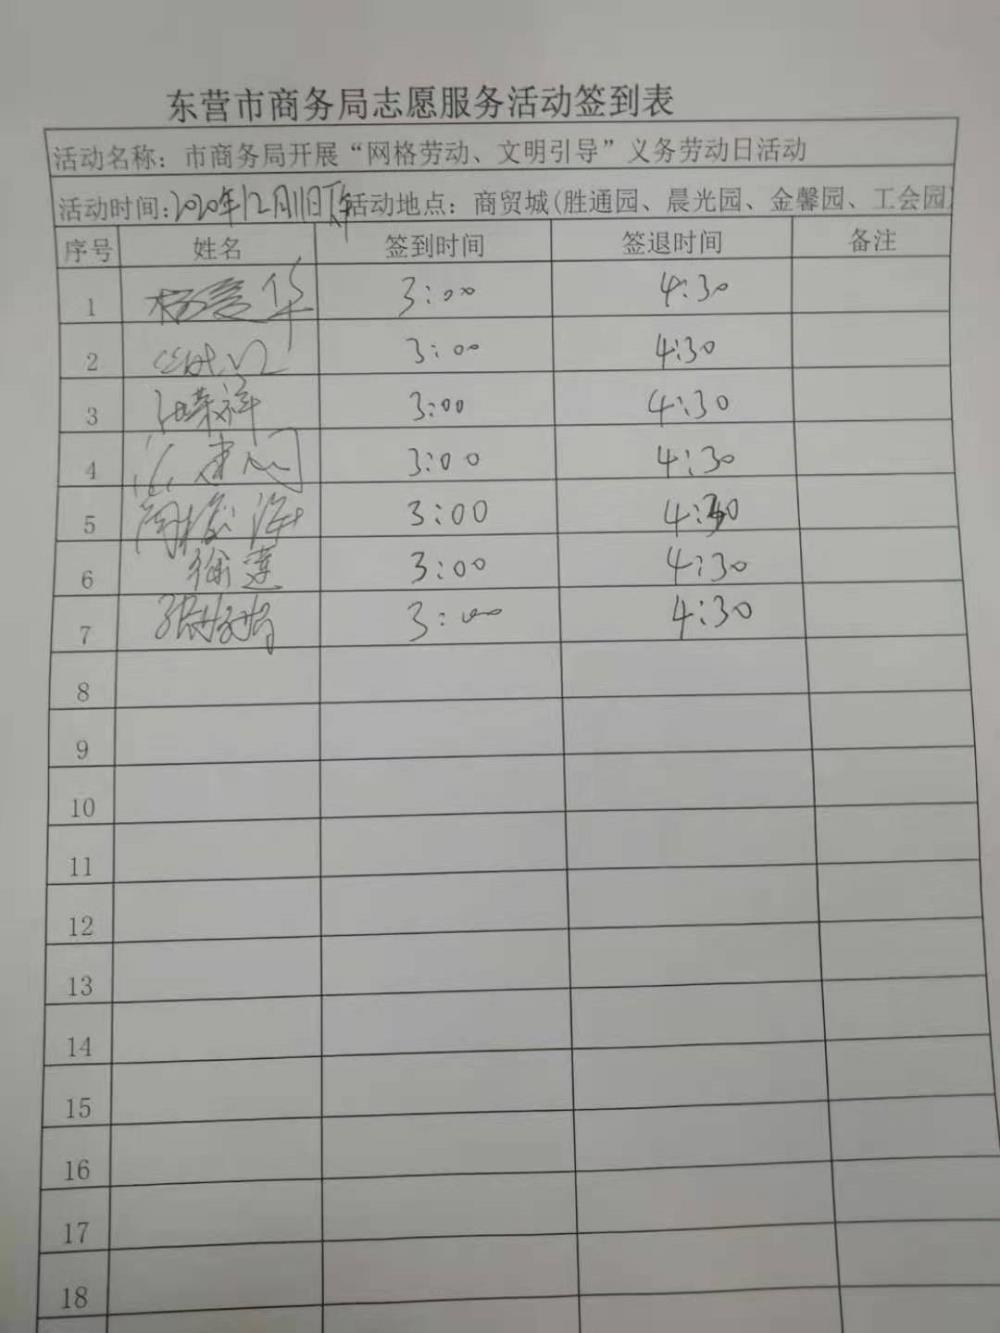 东营市商务局志愿服务活动签到表
活动名称：市商务局开展“网格劳动、文明引导”义务劳动日活动
活动时间:2020年12月11日下午 活动地点：商贸城(胜通园、晨光园、金馨园、工会园)
序号 姓名 签到时间 签退时间 备注
1 华 3:00 4:30
2 3:00 4:30
3 荣祥 3:00 4:30
4 3:00 4:30
5 海 3:00 4:30
6 徐莲 3:00 4:30
7 张 3:00 4:30
8
9
10
11
12
13
14
15
16
17
18